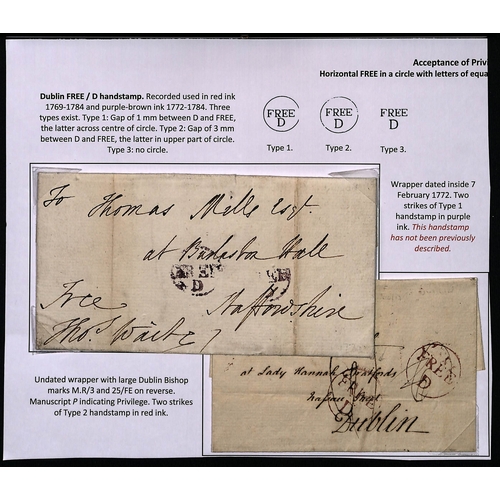 Acceptance of Privi
Horizontal FREE in a circle with letters of equa
Dublin FREE / D handstamp. Recorded used in red ink
1769-1784 and purple-brown ink 1772-1784. Three
types exist. Type 1: Gap of 1 mm between D and FREE,
the latter across centre of circle. Type 2: Gap of 3 mm
between D and FREE, the latter in upper part of circle.
Type 3: no circle.
FREE
D
Type 1.
FREE
D
Type 2.
FREE
D
Type 3.
To Thomas Mills Esqr.
at Barlaston Hall
Staffordshire
Free
Thos. Waite
FREE
D
Wrapper dated inside 7
February 1772. Two
strikes of Type 1
handstamp in purple
ink. This handstamp
has not been previously
described.
Undated wrapper with large Dublin Bishop
marks M.R/3 and 25/FE on reverse.
Manuscript P indicating Privilege. Two strikes
of Type 2 handstamp in red ink.
at Lady Hannah
Street
Dublin
FREE
D
FREE
D